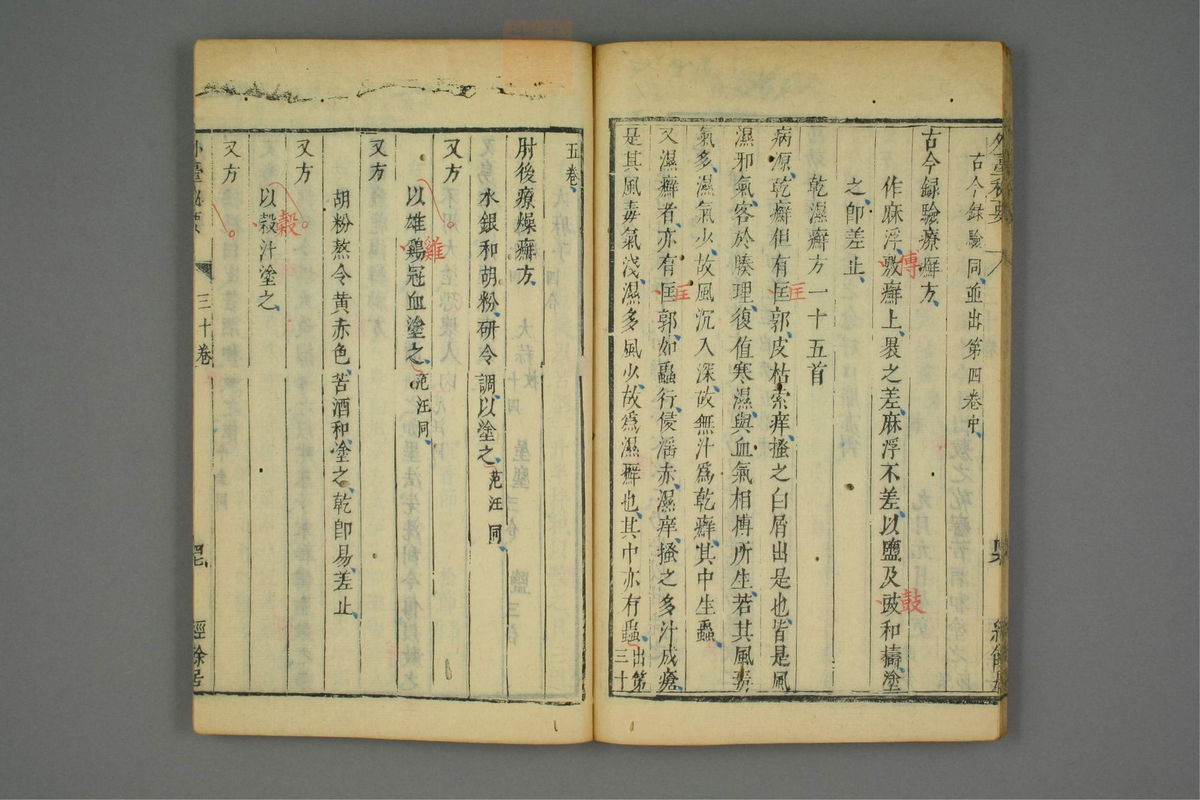 外臺秘要
古今録驗同並出第四卷中
古今録驗療癬方
作麻浮敷癬上裂之差麻浮不差以鹽及豉和擣塗
傅
鼓
之卽差止
乾濕癬方一十五首
病源乾癬但有匡郭皮枯索痒搔之白屑出是也皆是風
匡
濕邪氣客於腠理復值寒濕與血氣相搏所生若其風
氣多濕氣少故風沉入深故無汁爲乾癬其中生蟲
又濕癬者亦有匡郭如蟲行侵淫赤濕痒搔之多汁成瘡
匡
是其風毒氣淺濕多風少故爲濕癬也其中亦有蟲出第三十
五卷
肘後療燥癬方
水銀和胡粉研令調以塗之范汪同
又方
以雄鷄冠血塗之范汪同
雞
又方
胡粉熬令黄赤色苦酒和塗之乾卽易差止
又方
以穀汁塗之
穀
又方
外臺秘要
三十卷
經餘居